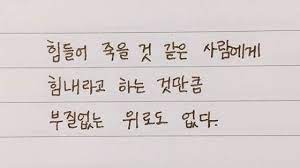 힘들어 죽을 것 같은 사람에게
힘내라고 하는 것만큼
부질없는 위로도 없다.